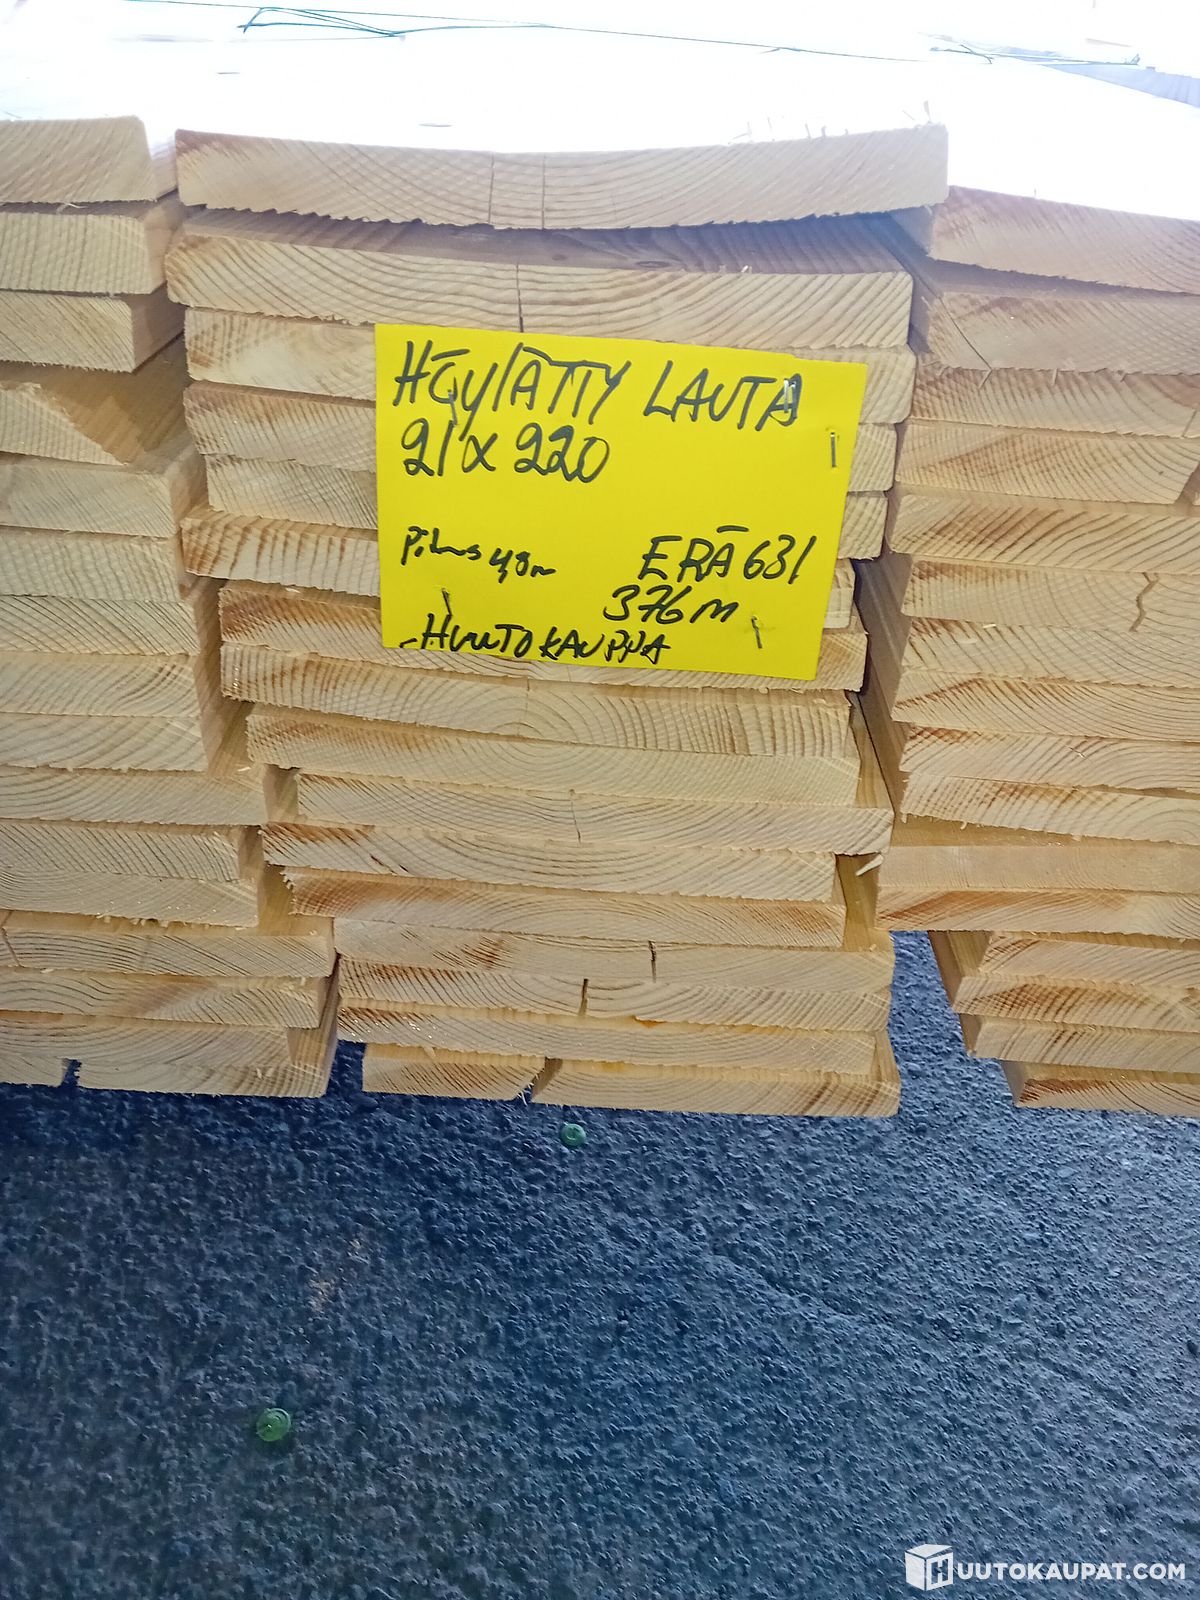 HÖYLÄTTY LAUTA
21 x 220
Pituus 4,8m
ERÄ 631
376 m
-HUUTOKAUPPA
HUUTOKAUPAT.COM